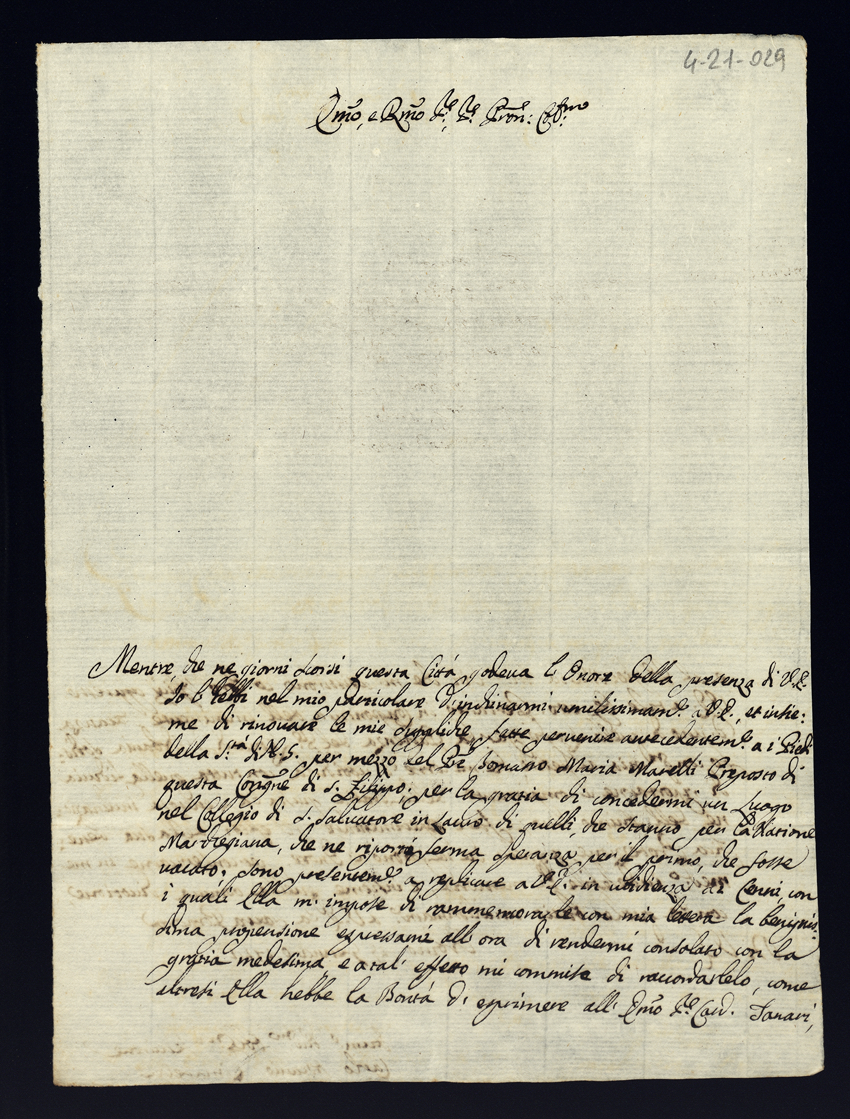 4-21-029
Emo, e Rmo Sre, Sre Pron: Colmo
Mentre, che ne giorni scorsi questa Città godeva l'Onore della presenza di V.E.
Io l'hebbi nel mio particolare d'inchinarmi umilissimamte a V.E., et insie:
me di rinovare le mie suppliche fatte pervenire antecedentemte a i Piedi
della Stà di N.S. per mezzo del Pre Romano Maria Maselli Preposto di
questa Congne di S. Filippo, per la gratia di concedermi un Luogo
nel Collegio di S. Salvatore in Lauro di quelli, che stanno per la Natione
Marchegiana, che ne riportai ferma speranza per il primo, che fosse
vacato; sono presentemte a replicare a V.E. in ubidienza ai Cenni con
i quali Ella m'impose di rammemorarle con mia lettera la benignis:
sima propensione espressami all'ora di rendermi consolato con la
gratia medesima, e a tal'effetto mi commise di raccordarlelo, come
altresì Ella hebbe la Bontà d'esprimere all'Emo Sre Card.